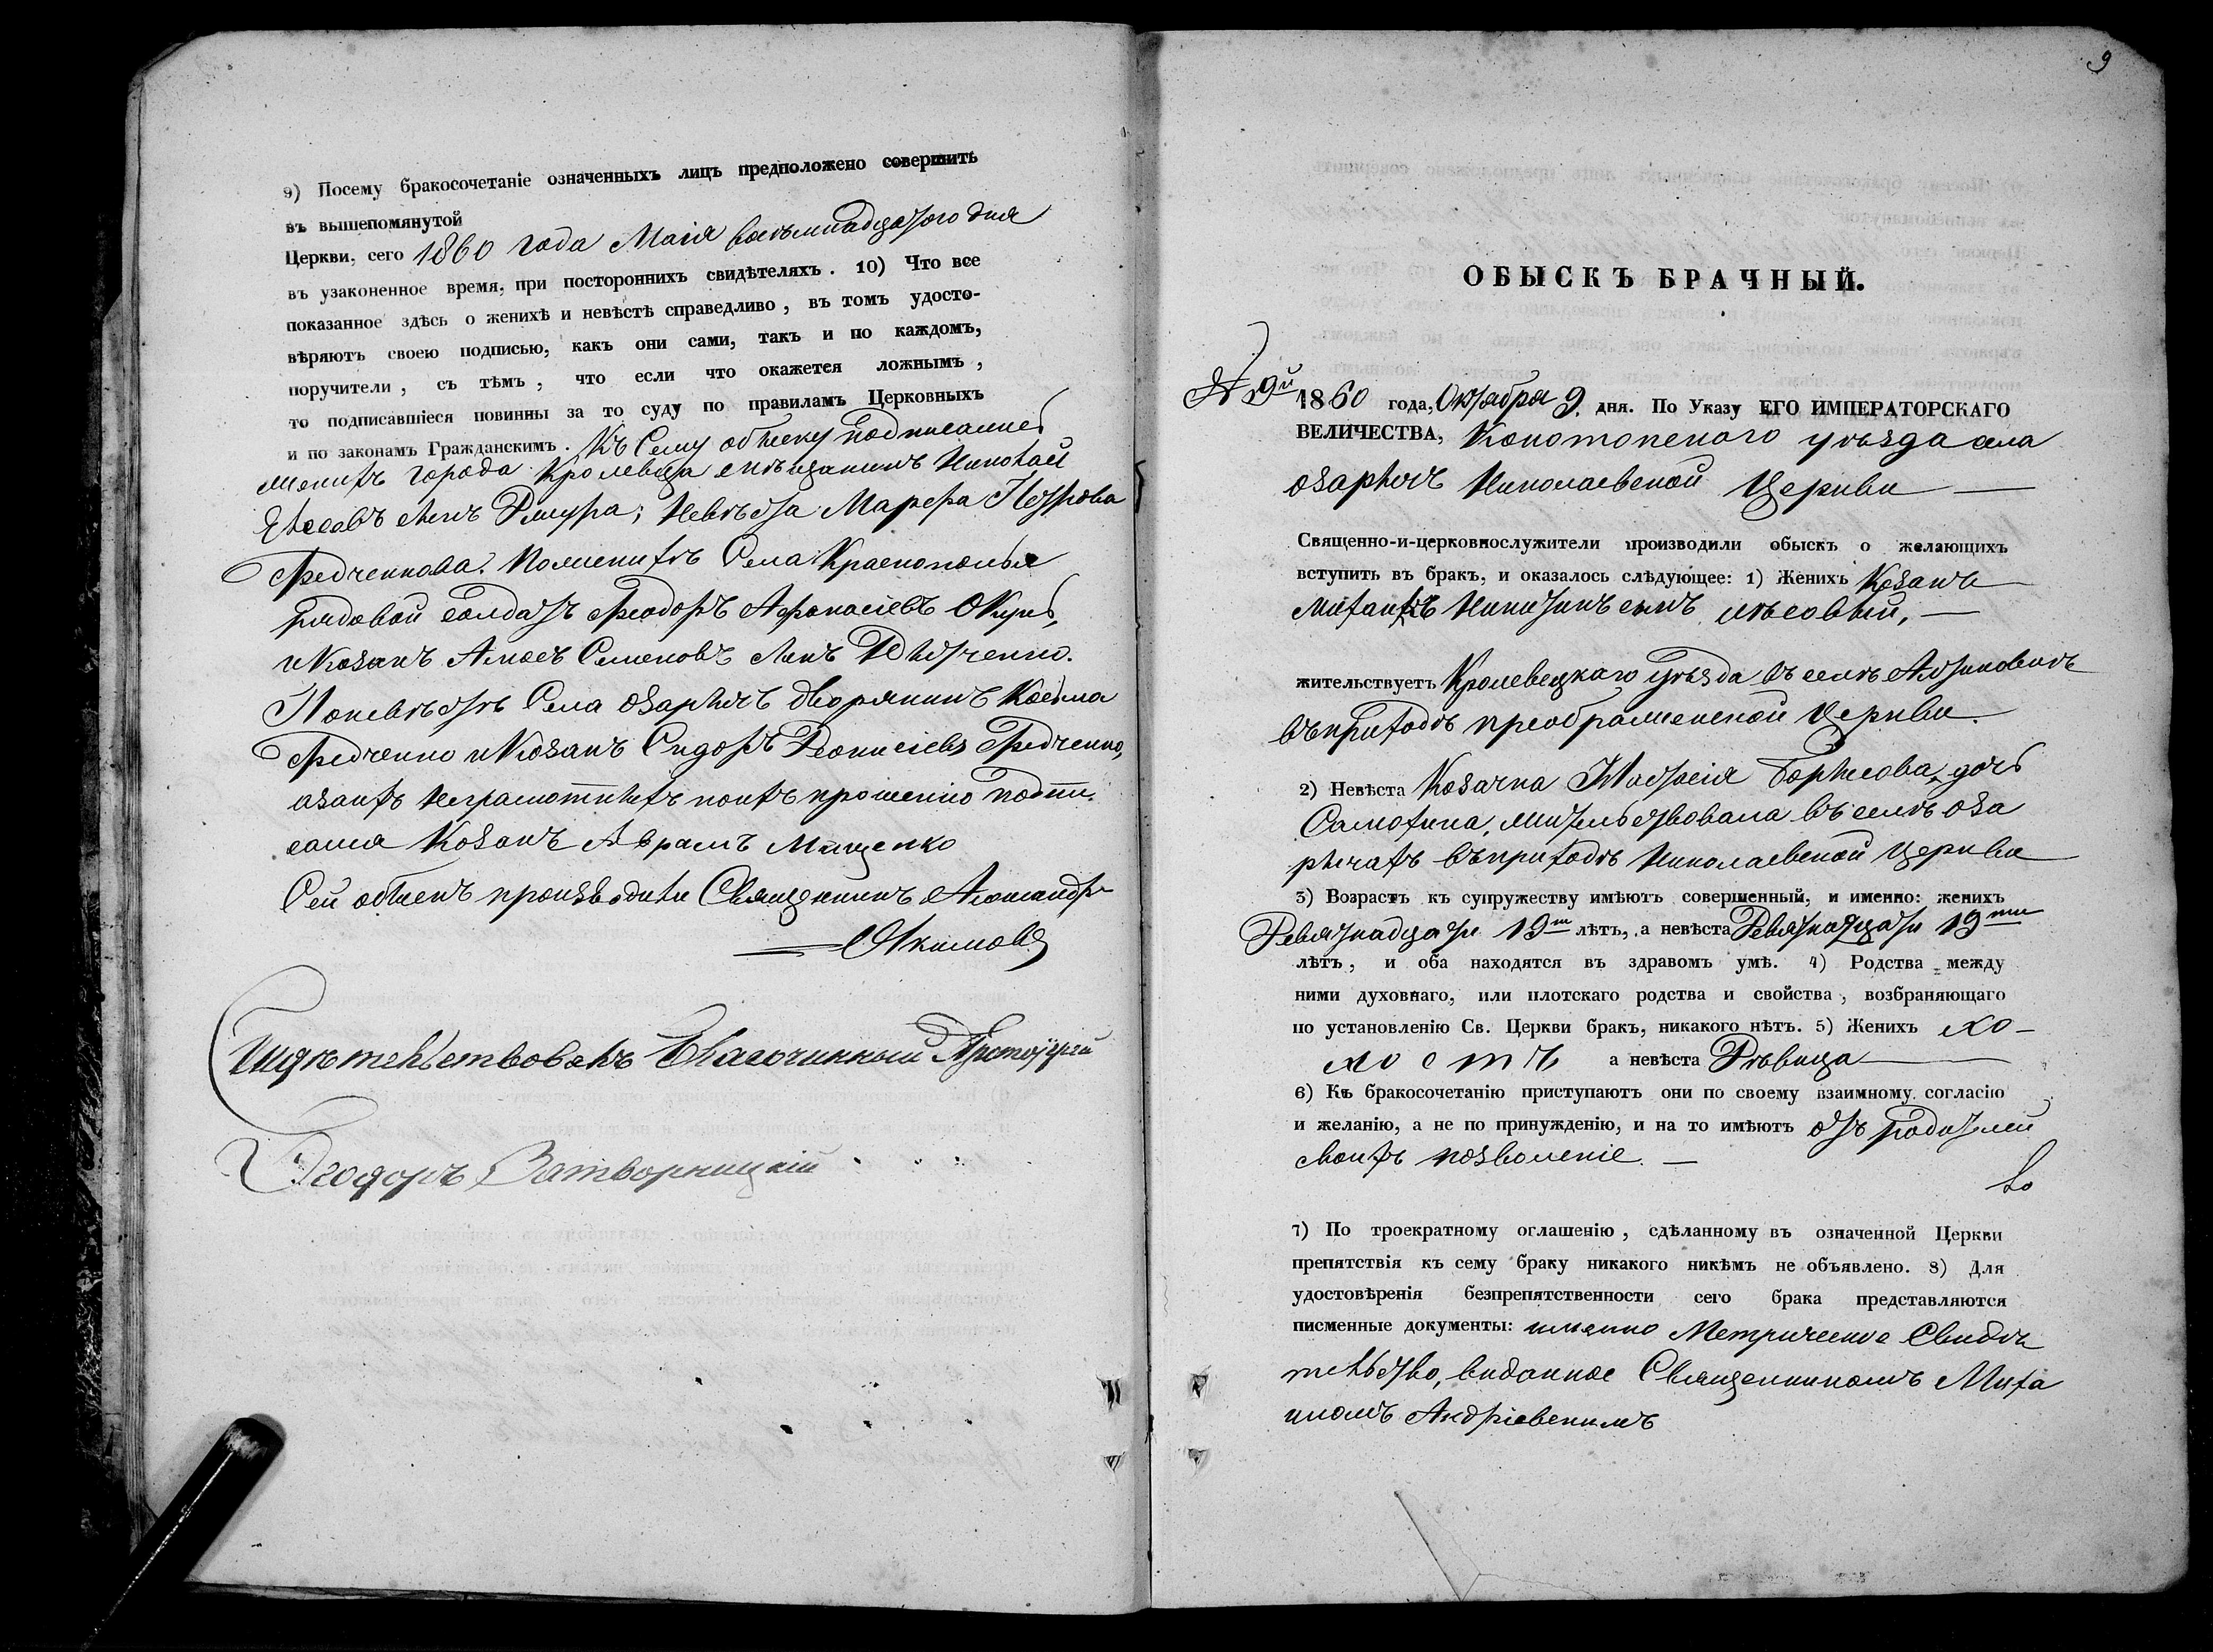 9) Посему бракосочетаніе означенныхъ лицъ предположено совершить
въ вышепомянутой
Церкви, сего 1860 года Маія восьмнадцатого дня
въ узаконенное время, при постороннихъ свидѣтеляхъ. 10) Что все
показанное здѣсь о женихѣ и невѣстѣ справедливо, въ томъ удосто-
вѣряютъ своею подписью, какъ они сами, такъ и по каждомъ,
поручители, съ тѣмъ, что если что окажется ложнымъ,
то подписавшіеся повинны за то суду по правиламъ Церковныхъ
и по законамъ Гражданскимъ. Къ Сему обыску подписались
женихъ города Кролевца мѣщанинъ Николай
сынъ невѣста Марфа Петрова
Федченкова. По женихѣ Села Краснополья
рядовой солдатъ Феодоръ Афанасіевъ Окунь,
и Козакъ Семеновъ сынъ
По невѣстѣ Села Озаричъ дворянинъ Косьма
Федченко и Козакъ Сидоръ Деонисіевъ Федченко,
а за ихъ неграмотныхъ по ихъ прошенію подпи-
сался Козакъ Аврамъ Мищенко
Сей обыскъ производилъ Священникъ Александръ
Акимовъ
Свидѣтельствовалъ Благочинный Протоіерей
Феодоръ Затворницкій
9
ОБЫСКЪ БРАЧНЫЙ.
№ 9й
1860 года, Октября 9. дня. По Указу ЕГО ИМПЕРАТОРСКАГО
ВЕЛИЧЕСТВА, Конотопского уѣзда села
Озаричъ Николаевской Церкви
Священно-и-церковнослужители производили обыскъ о желающихъ
вступить въ бракъ, и оказалось слѣдующее: 1) Женихъ Козакъ
Михаилъ Никитинъ сынъ Лѣсовый,
жительствуетъ Кролевецкаго уѣзда въ селѣ Алтыновкѣ
въ приходѣ преображенской Церкви.
2) Невѣста Козачка Настасія Борисова дочь
Самохина, жительствовала въ селѣ Оза
ричахъ въ приходѣ Николаевской Церкви
3) Возрастъ къ супружеству имѣютъ совершенный, и именно: женихъ
Девятнадцати 19ти лѣтъ, а невѣста Девятнадцати 19ти
лѣтъ, и оба находятся въ здравомъ умѣ. 4) Родства между
ними духовнаго, или плотскаго родства и свойства, возбраняющаго
по установленію Св. Церкви бракъ, никакого нѣтъ. 5) Женихъ хо-
лостъ а невѣста Дѣвица
6) Къ бракосочетанію приступаютъ они по своему взаимному согласію
и желанію, а не по принужденію, и на то имѣютъ отъ родителей
своихъ позволеніе.
7) По троекратному оглашенію, сдѣланному въ означенной Церкви
препятствія къ сему браку никакого никѣмъ не объявлено. 8) Для
удостовѣренія безпрепятственности сего брака представляются
писменные документы: именно Метрическое Свидѣ
тельство, виданное Священникомъ Миха
иломъ Андріевскимъ